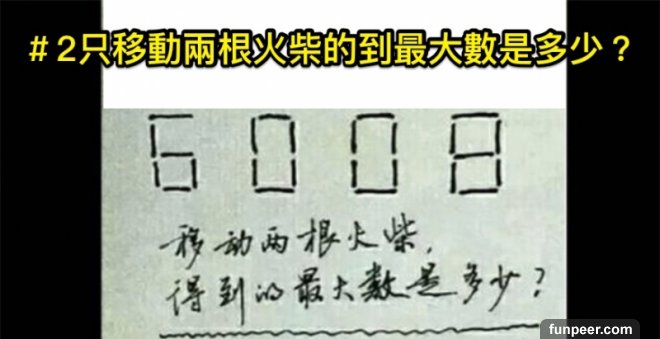 # 2只移動兩根火柴的到最大數是多少？
6008
移动两根火柴,
得到的最大数是多少?
funpeer.com